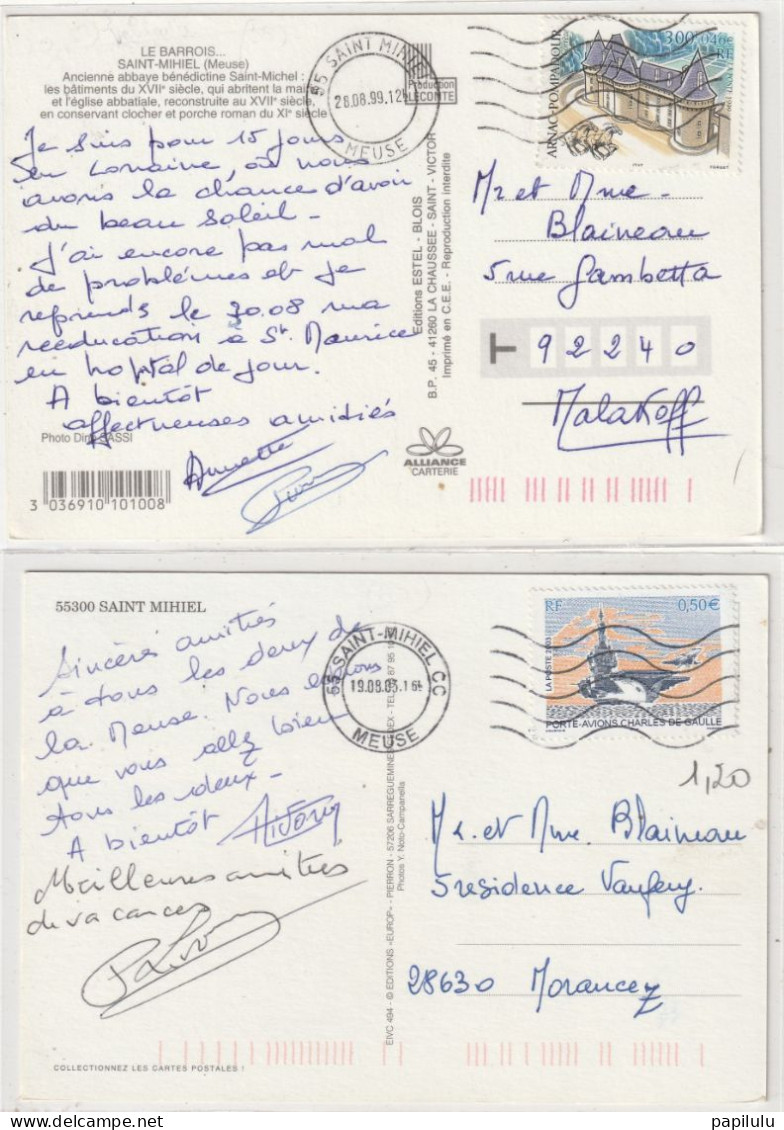 LE BARROIS...
SAINT-MIHIEL (Meuse)
Ancienne abbaye bénédictine Saint-Michel :
les bâtiments du XVIIᵉ siècle, qui abritent la mairie
et l'église abbatiale, reconstruite au XVIIᵉ siècle,
en conservant clocher et porche roman du XIᵉ siècle
Je suis pour 15 jours
en Lorraine, où nous
avons la chance d'avoir
du beau soleil -
J'ai encore pas mal
de problèmes et je
reprends le 30.08 ma
rééducation à St Maurice
en hopital de jour.
A bientôt
affectueuses amitiés
Annette
Photo Dino SASSI
3 036910 101008
55 SAINT MIHIEL
28.08.99.12
MEUSE
Production
LECONTE
Editions ESTEL - BLOIS
B.P. 45 - 41260 LA CHAUSSEE - SAINT - VICTOR
Imprimé en C.E.E. - Reproduction interdite
ALLIANCE
CARTERIE
3,00 0,46€
RF
ARNAC-POMPADOUR
LA POSTE 1999
Mr et Mme
Blaineau
5 rue Gambetta
T 92240
Malakoff
55300 SAINT MIHIEL
Sincères amitiés
à tous les deux de
la Meuse. Nous espérons
que vous allez bien
tous les deux -
A bientôt
Meilleures amitiés
de vacances
COLLECTIONNEZ LES CARTES POSTALES !
55 SAINT-MIHIEL CC
19.08.03.1
MEUSE
EIVC 494 - © EDITIONS «EUROP» - PIERRON - 57206 SARREGUEMINES
Photos Y. Noto-Campanella
RF 0,50€
LA POSTE 2003
PORTE-AVIONS CHARLES DE GAULLE
1,20
Mr. et Mme. Blaineau
5 residence
28630 Morancez
papilulu